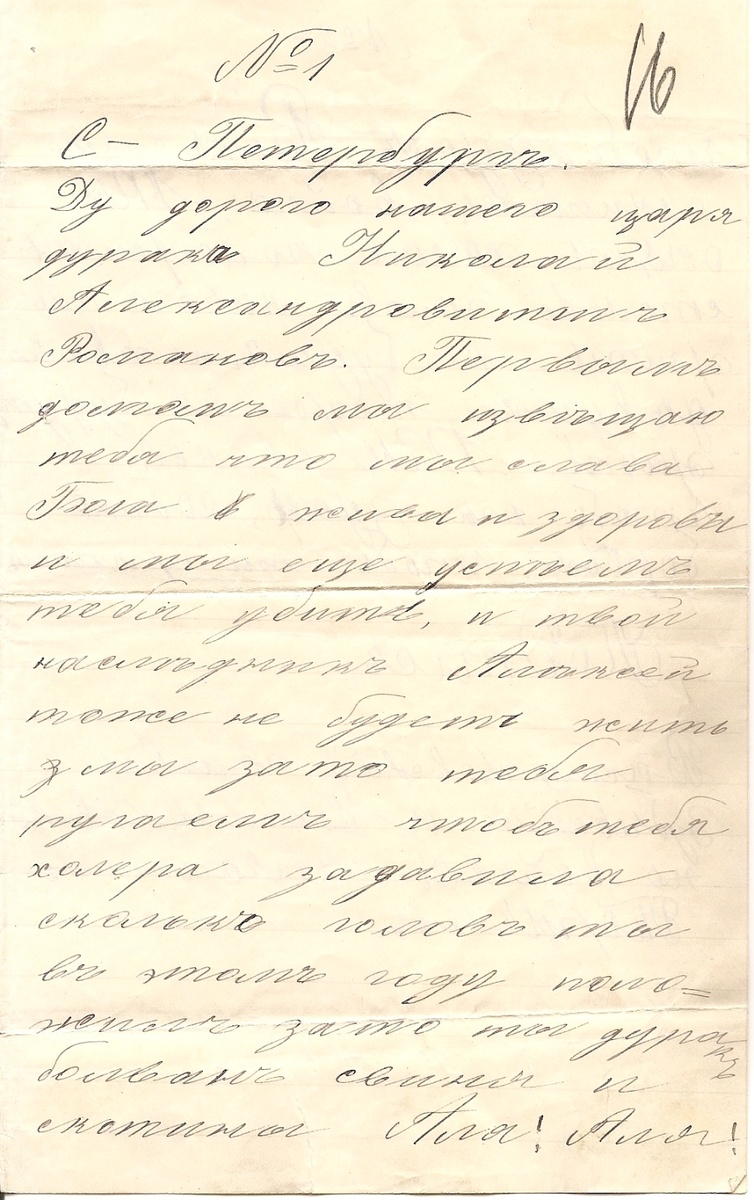 № 1
16
С – Петербургъ.
Ду дорого нашего царя
дуракъ Николай
Александровитшъ
Романовъ. Первымъ
домомъ мы извѣщаю
тебя что мы слава
Бога жива и здоровы
и мы еще успѣемъ
тебя убить, и твой
наслѣдникъ Алѣксей
тоже не будетъ жить
мы зато тебя
пугаемъ чтобъ тебя
холера задавила
сколько головъ ты
въ этомъ году поло=
жилъ зато ты дуракъ
болванъ свиня и
скотины Ала! Аля!